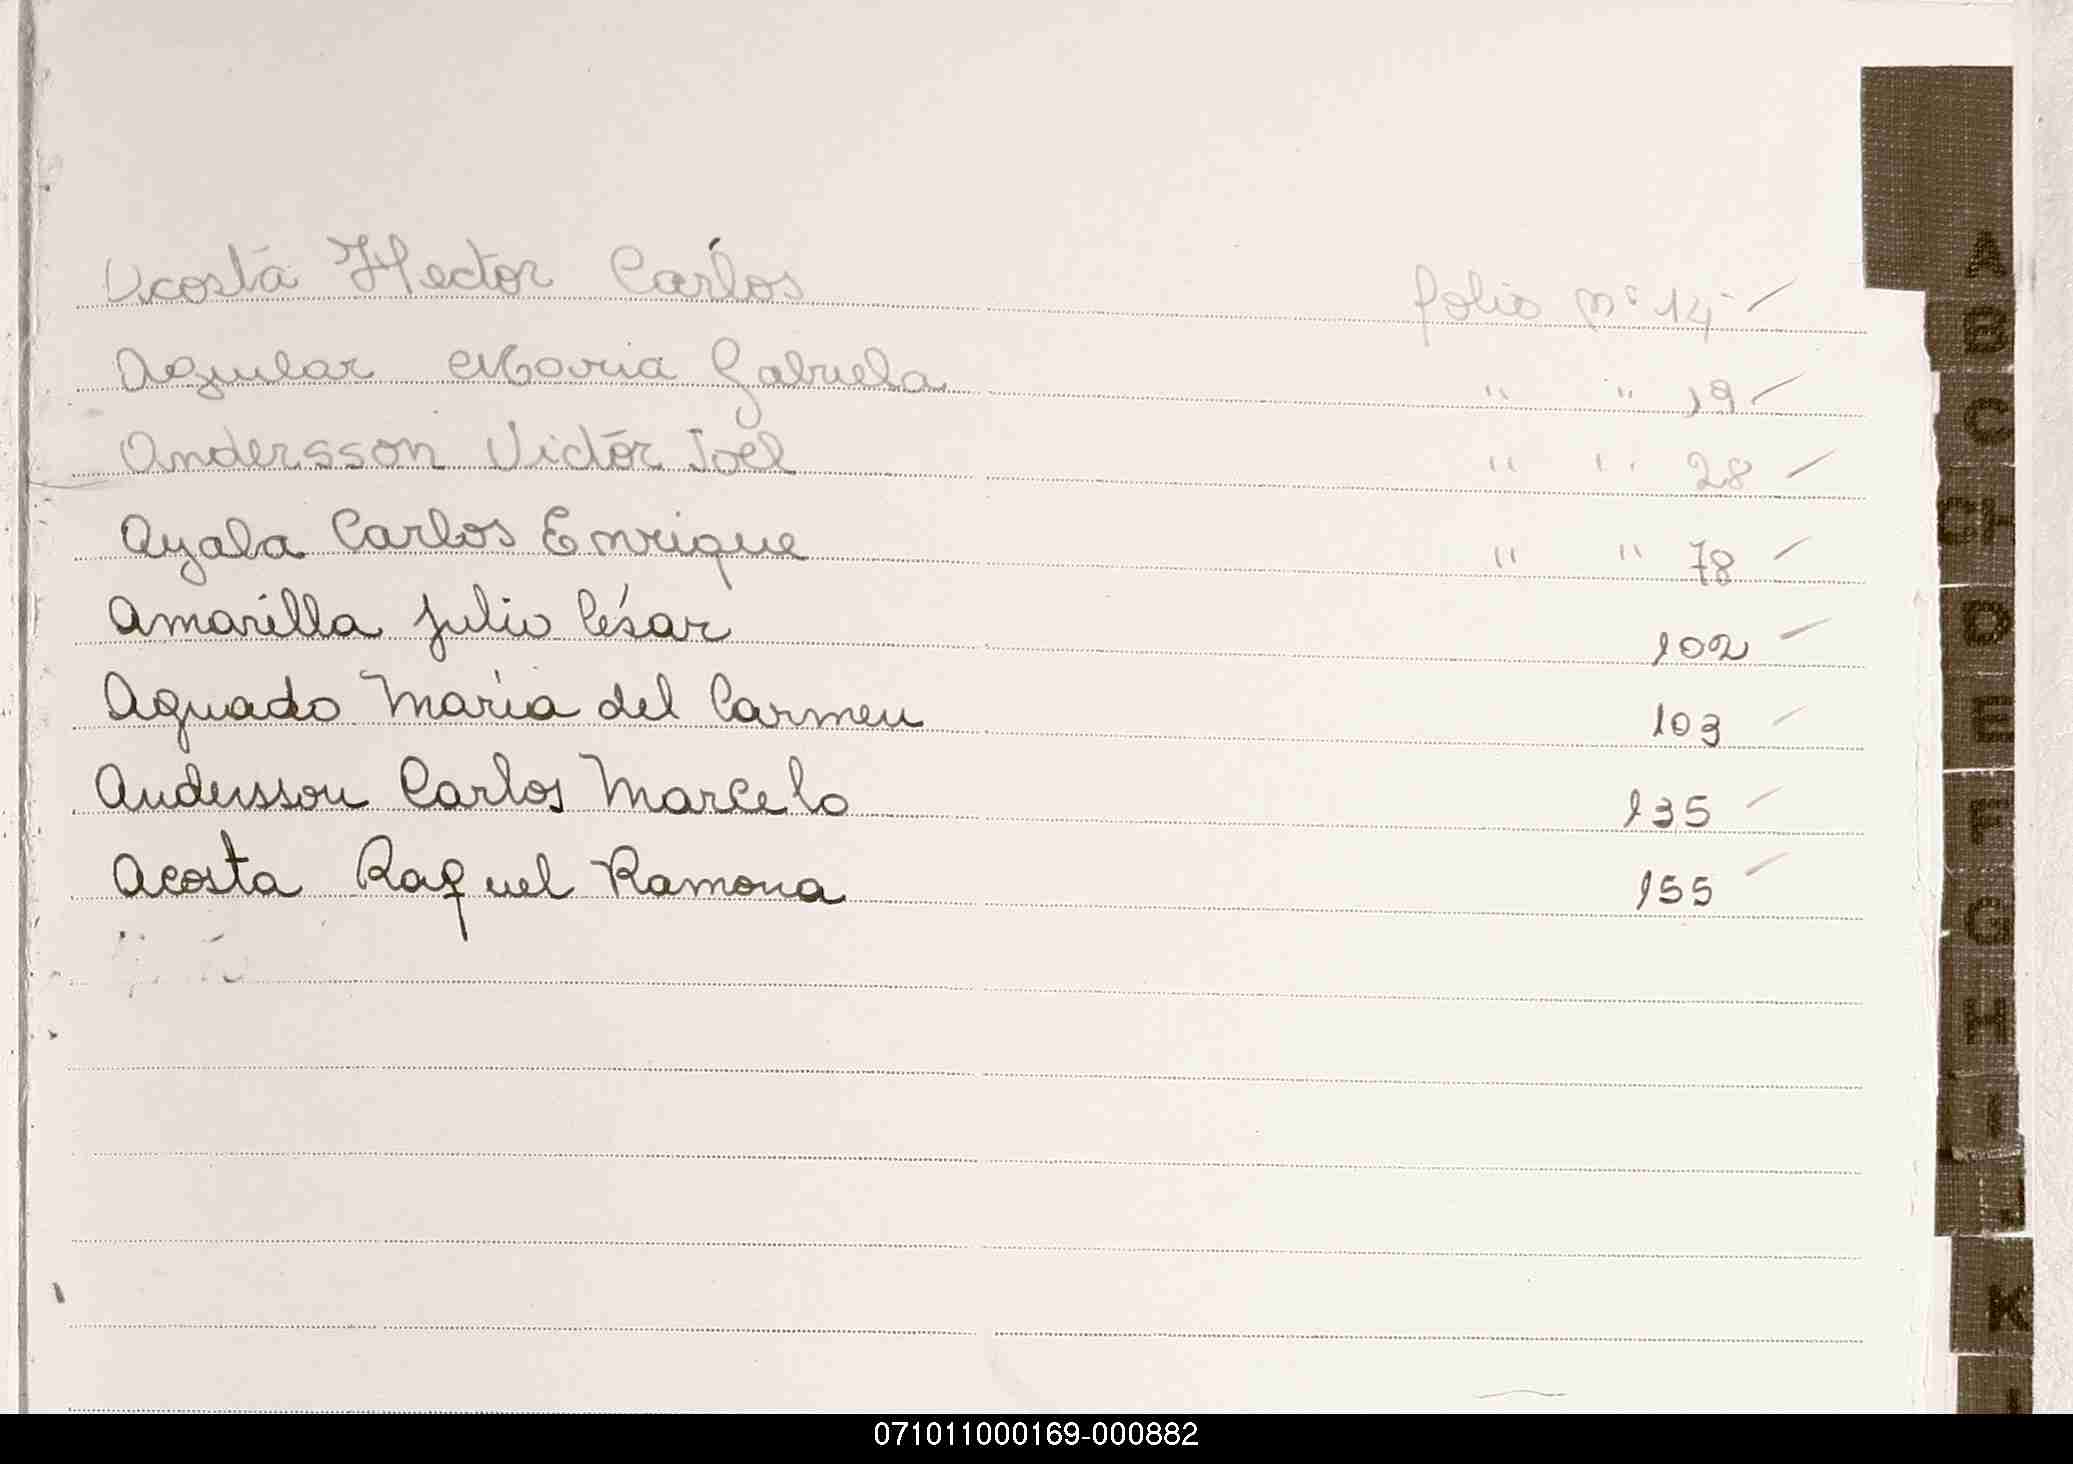 Acosta Hector Carlos folio nº 14 -
Aguilar Maria Gabriela " " 19
Andersson Victor Joel " " 28
Ayala Carlos Enrique " " 78
Amarilla Julio César 102
Aguado María del Carmen 103
Andersson Carlos Marcelo 135
Acosta Raquel Ramona 155
A
B
C
CH
D
E
F
G
H
I
J
K
071011000169-000882